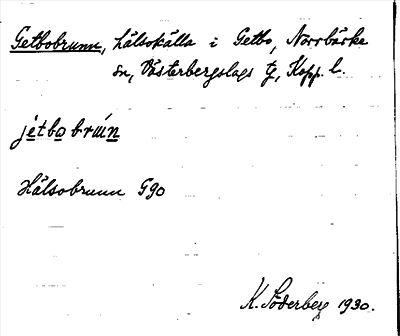 Getbobrunn, hälsokälla i Getbo, Norrbärke
sn, Västerbergslags tg, Kopp. l.
jetbobrún
Hälsobrunn G90
K. Söderberg 1930.